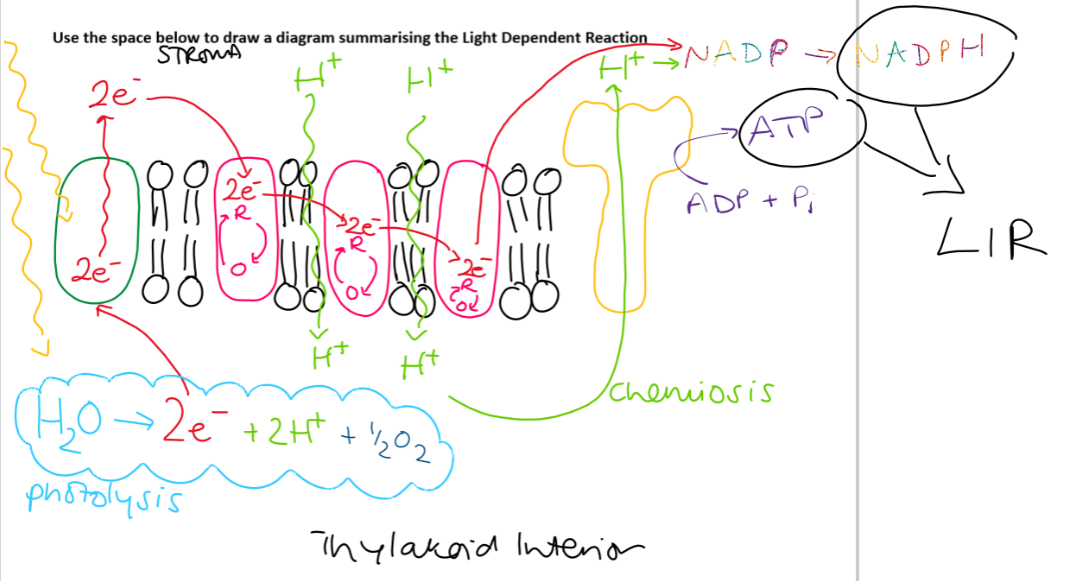 Use the space below to draw a diagram summarising the Light Dependent Reaction
STROMA
2e⁻
H⁺
H⁺
H⁺ → NADP → NADPH
ATP
ADP + Pᵢ
LIR
2e⁻
R
O
2e⁻
R
O
2e⁻
R
O
2e⁻
H⁺
H⁺
chemiosis
H₂O → 2e⁻ + 2H⁺ + ½O₂
photolysis
Thylakoid Interior